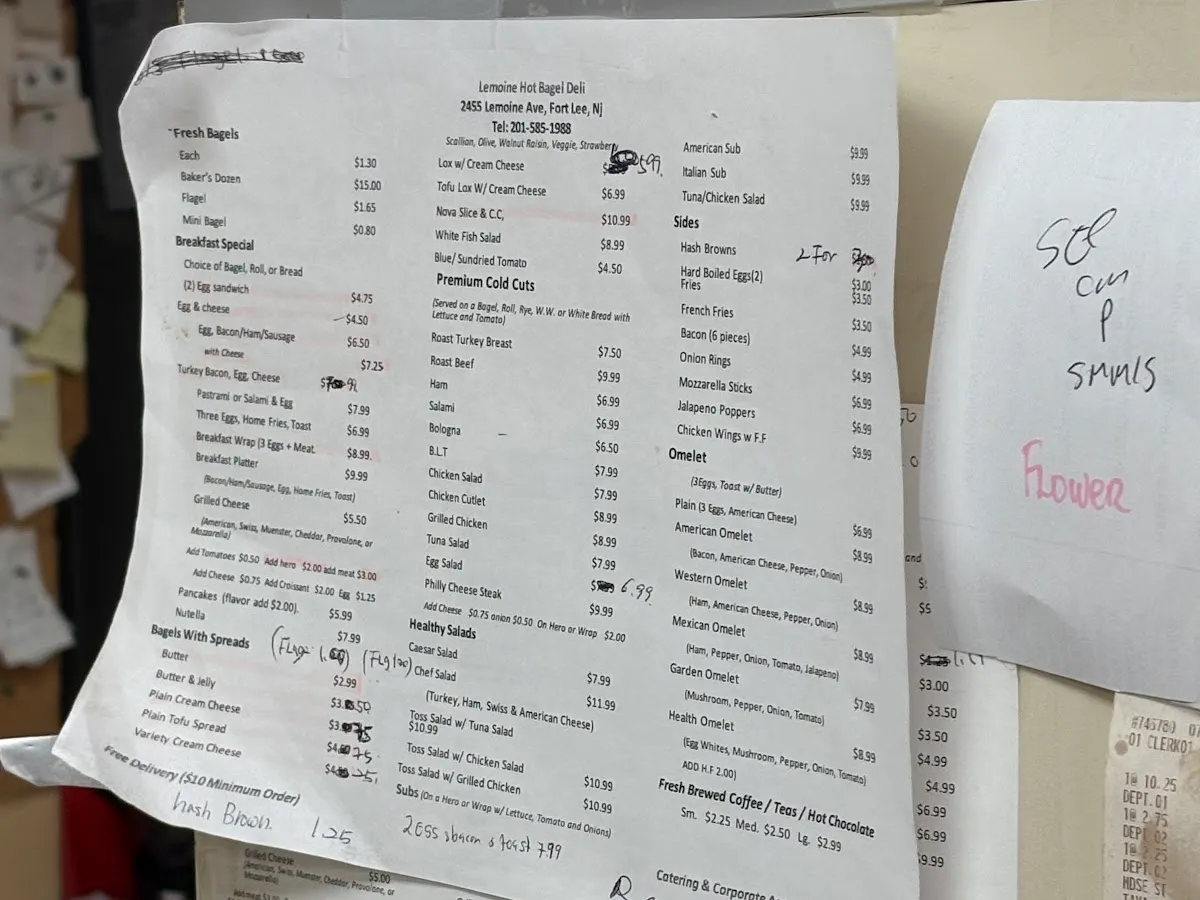 Lemoine Hot Bagel Deli
2455 Lemoine Ave, Fort Lee, Nj
Tel: 201-585-1988
Fresh Bagels
Each $1.30
Baker's Dozen $15.00
Flagel $1.65
Mini Bagel $0.80
Breakfast Special
Choice of Bagel, Roll, or Bread
(2) Egg sandwich $4.75
Egg & cheese $4.50
Egg, Bacon/Ham/Sausage $6.50
with Cheese $7.25
Turkey Bacon, Egg, Cheese
Pastrami or Salami & Egg $7.99
Three Eggs, Home Fries, Toast $6.99
Breakfast Wrap (3 Eggs + Meat. $8.99.
Breakfast Platter $9.99
(Bacon/Ham/Sausage, Egg, Home Fries, Toast)
Grilled Cheese $5.50
(American, Swiss, Muenster, Cheddar, Provolone, or
Mozzarella)
Add Tomatoes $0.50 Add hero $2.00 add meat $3.00
Add Cheese $0.75 Add Croissant $2.00 Egg $1.25
Pancakes (flavor add $2.00). $5.99
Nutella $7.99
Bagels With Spreads
Butter $2.99
Butter & Jelly $3. 50
Plain Cream Cheese $3. 75
Plain Tofu Spread $4. 75
Variety Cream Cheese $4. 25
Free Delivery ($10 Minimum Order)
hash Brown. 1.25
Scallion, Olive, Walnut Raisin, Veggie, Strawberry
Lox w/ Cream Cheese 599.
Tofu Lox W/ Cream Cheese $6.99
Nova Slice & C.C, $10.99
White Fish Salad $8.99
Blue/ Sundried Tomato $4.50
Premium Cold Cuts
(Served on a Bagel, Roll, Rye, W.W. or White Bread with
Lettuce and Tomato)
Roast Turkey Breast $7.50
Roast Beef $9.99
Ham $6.99
Salami $6.99
Bologna $6.50
B.L.T $7.99
Chicken Salad $7.99
Chicken Cutlet $8.99
Grilled Chicken $8.99
Tuna Salad $7.99
Egg Salad 6.99
Philly Cheese Steak $9.99
Add Cheese $0.75 onion $0.50 On Hero or Wrap $2.00
Healthy Salads
Caesar Salad $7.99
Chef Salad $11.99
(Turkey, Ham, Swiss & American Cheese)
Toss Salad w/ Tuna Salad
$10.99
Toss Salad w/ Chicken Salad $10.99
Toss Salad w/ Grilled Chicken $10.99
Subs (On a Hero or Wrap w/ Lettuce, Tomato and Onions)
bacon toast 7.99
American Sub $9.99
Italian Sub $9.99
Tuna/Chicken Salad $9.99
Sides
Hash Browns 2 For
Hard Boiled Eggs(2) $3.00
Fries $3.50
French Fries $3.50
Bacon (6 pieces) $4.99
Onion Rings $4.99
Mozzarella Sticks $6.99
Jalapeno Poppers $6.99
Chicken Wings w F.F $9.99
Omelet
(3Eggs, Toast w/ Butter)
Plain (3 Eggs, American Cheese) $6.99
American Omelet $8.99
(Bacon, American Cheese, Pepper, Onion)
Western Omelet $8.99
(Ham, American Cheese, Pepper, Onion)
Mexican Omelet $8.99
(Ham, Pepper, Onion, Tomato, Jalapeno)
Garden Omelet $7.99
(Mushroom, Pepper, Onion, Tomato)
Health Omelet $8.99
(Egg Whites, Mushroom, Pepper, Onion, Tomato)
ADD H.F 2.00)
Fresh Brewed Coffee / Teas / Hot Chocolate
Sm. $2.25 Med. $2.50 Lg. $2.99
Catering & Corporate
Grilled Cheese $5.00
(American, Swiss, Muenster, Cheddar, Provolone, or
Mozzarella)
and
$3.00
$3.50
$3.50
$4.99
$4.99
$6.99
$6.99
$9.99
P
FLOWER
#746780
01 CLERK01
1@ 10.25
DEPT.01
1@ 2.75
DEPT 02
DEPT.02
MDSE ST